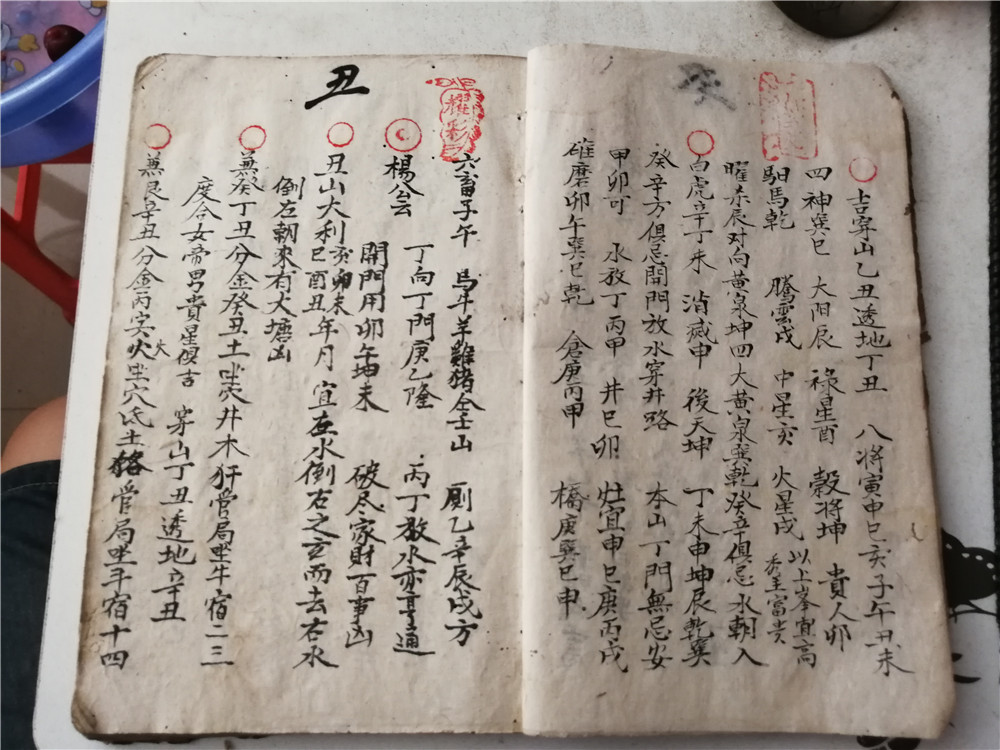 癸
吉穿山乙丑透地丁丑 八將寅申巳亥子午丑未
四神巽巳 大阳辰 祿星酉 穀將坤 貴人卯
馹馬乾 騰雲戌 中星亥 火星戌 以上峯宜高
秀主富贵
曜杀辰对向黄泉坤四大黄泉並乾癸辛俱忌水朝入
白虎辛丁未 消滅申 後天坤 丁未申坤辰乾巽
癸辛方俱忌開門放水穿井路 本山丁門無忌安
甲卯可 水放丁丙甲 井巳卯 灶宜申巳庚丙戌
碓磨卯午巽巳乾 倉庚丙甲 橋庚巽巳申
丑
耀彩
六畜子午 馬牛羊雞猪全壬山 厠乙辛辰戌方
楊公云 丁向丁門庚乙隆 丙丁放水亦亨通
開門用卯午坤未 破尽家財百事凶
丑山大利亥卯未巳酉丑年月 宜在水倒右之玄而去右水
倒左朝來有大塘凶
兼癸丁丑分金癸丑土坐穴井木犴管局坐牛宿二三
度合女帝男貴星俱吉 穿山丁丑透地辛丑
兼艮辛丑分金丙安大火坐穴氐土貉管局坐斗宿十四